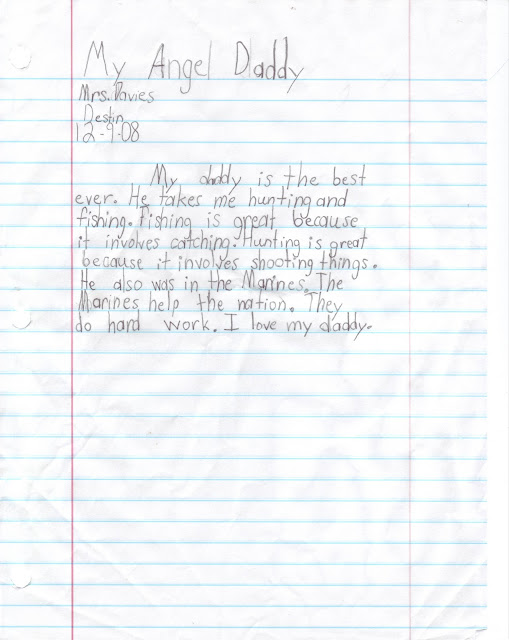 My Angel Daddy
Mrs. Davies
Destin
12-9-08
My daddy is the best
ever. He takes me hunting and
fishing. Fishing is great because
it involves catching. Hunting is great
because it involves shooting things.
He also was in the Marines. The
Marines help the nation. They
do hard work. I love my daddy.